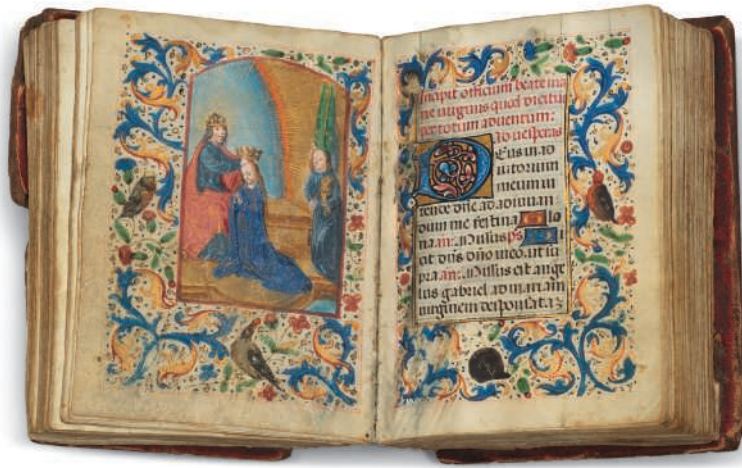 Incipit officium beate ma
rie virginis quod dicitur
per totum adventum:
ad vesperas
Deus in ad
iutorium
meum in
tende dñe ad adiuvan
dum me festina Glo
ria an: Missus ps Di
xit dñs dño meo. ut su
pra an: Missus est ange
lus gabriel ad mariam
virginem desponsatā